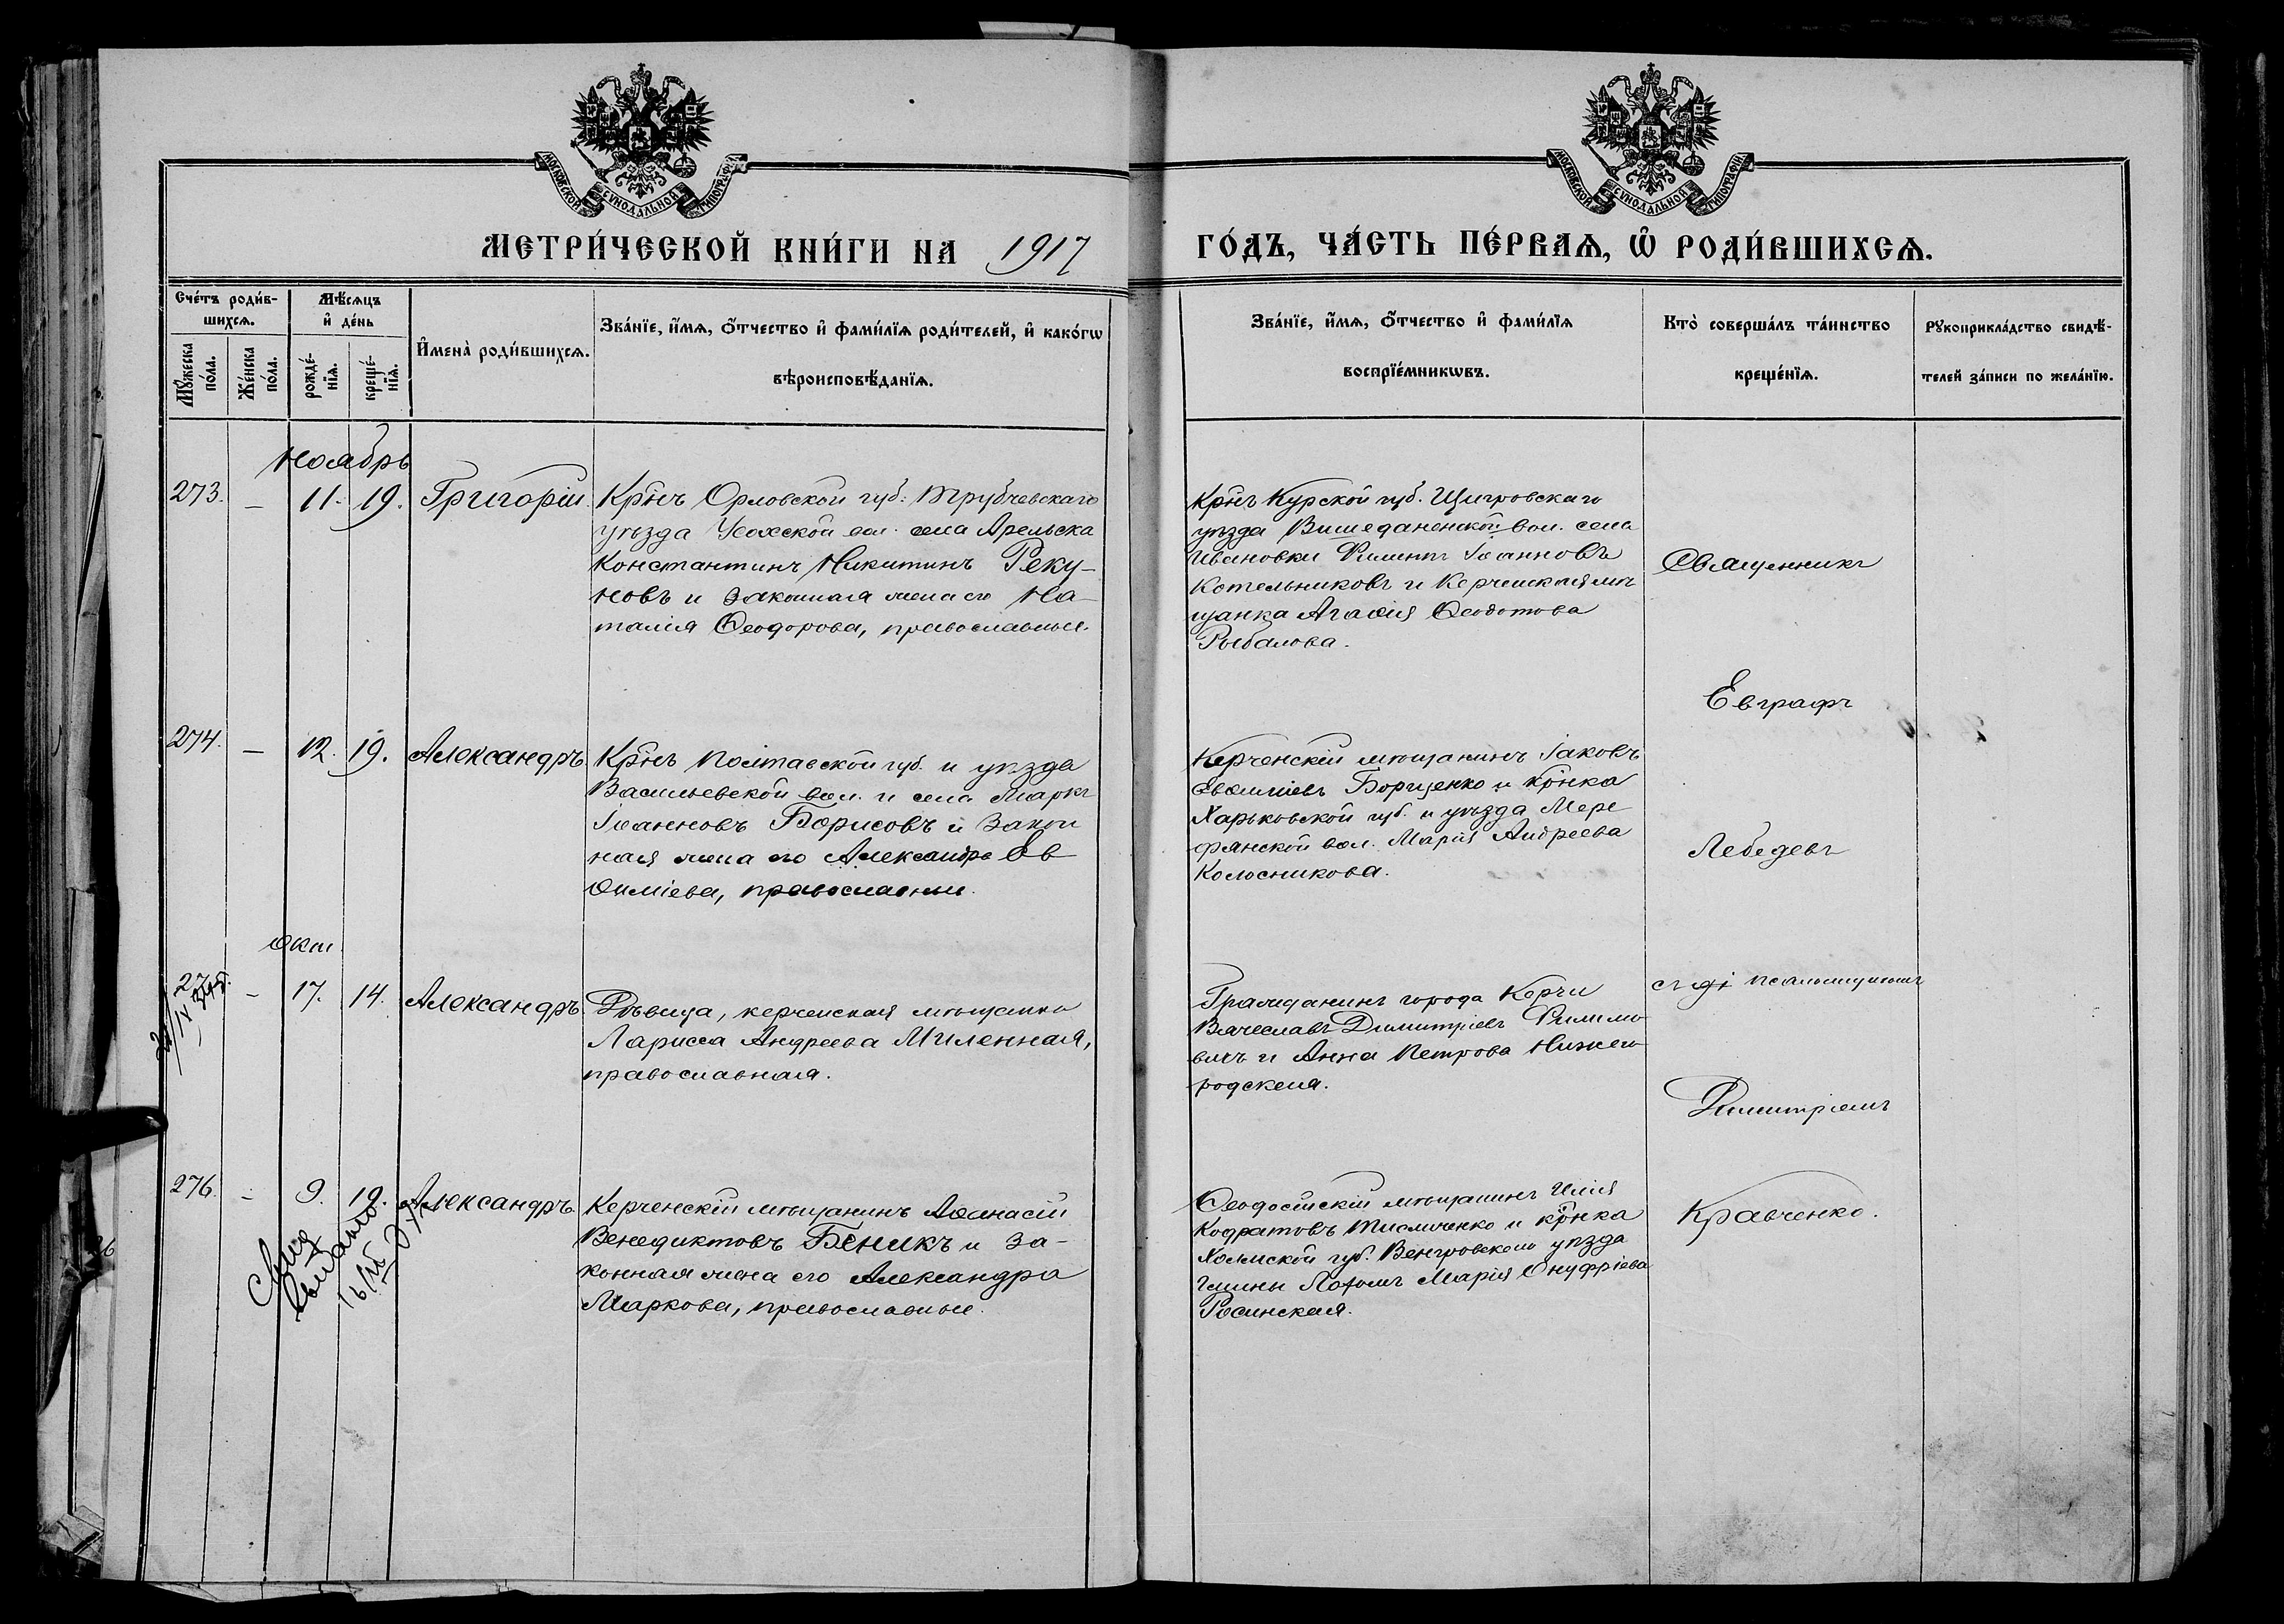 МОСКОВСКОЙ СѴНОДАЛЬНОЙ ТИПОГРАФІИ
МОСКОВСКОЙ СѴНОДАЛЬНОЙ ТИПОГРАФІИ
МЕТРИ́ЧЕСКОЙ КНИ́ГИ НА 1917
ГО́ДЪ, ЧА́СТЬ ПЕ́РВАѦ, Ѡ҆ РОДИ́ВШИХСѦ.
Сче́тъ роди́в-
шихсѧ.
Мꙋ́жеска
по́ла.
Же́нска
по́ла.
Мѣ́сѧцъ
и҆ де́нь
рожде́-
нїѧ.
креще́-
нїѧ.
И҆мена̀ роди́вшихсѧ.
Зва́нїе, и҆́мѧ, ѻ҆́тчество и҆ фами́лїѧ роди́телей, и҆ како́гѡ
вѣроисповѣ́данїѧ.
Зва́нїе, и҆́мѧ, ѻ҆́тчество и҆ фами́лїѧ
воспрїе́мникѡвъ.
Кто̀ соверша́лъ та́инство
креще́нїѧ.
Рꙋкоприкла́дство свидѣ́-
телей за́писи по жела́нїю.
Ноябрь
273. – 11. 19. Григорій
Крн̃ъ Орловской губ. Трубчевскаго
уѣзда Усохской вол. села Арельска
Константинъ Никитинъ Реку-
новъ и законная жена его На-
талія Ѳеодорова, православные.
Крн̃ъ Курской губ. Щигровскаго
уѣзда вол. села
Ивановки Іоанновъ
Котельниковъ и Керченская мѣ
щанка Агаѳія Ѳеодотова
Рыбалова.
Священникъ
Евграфъ
274. – 12. 19. Александръ
Крн̃ъ Полтавской губ. и уѣзда
Васильевской вол. и села Маркъ
Іоанновъ Борисовъ и закон
ная жена его Александра Ев
ѳиміева, православные.
Керченскій мѣщанинъ Іаковъ
Евѳиміевъ Борщенко и крн̃ка
Харьковской губ. и уѣзда Мере
фянской вол. Марія Андреева
Колосникова.
Лебедевъ
Окт
275. – 17. 14. Александръ
Дѣвица, керченская мѣщанка
Ларисса Андреева Миленная,
православная.
Гражданинъ города Керчи
Вячеславъ Димитріевъ Филимо
вичъ и Анна Петрова Нижего
родская.
съ псаломщикомъ
Димитріемъ
276. – 9. 19. Александръ
Свид
выдано
Керченскій мѣщанинъ Аѳанасій
Венедиктовъ Беникъ и за-
конная жена его Александра
Маркова, православные.
Ѳеодосійскій мѣщанинъ Илія
Кодратовъ Тисличенко и крн̃ка
Холмской губ. Венгровскаго уѣзда
Гмины Марія Онуфріева
Росинская.
Кравченко.